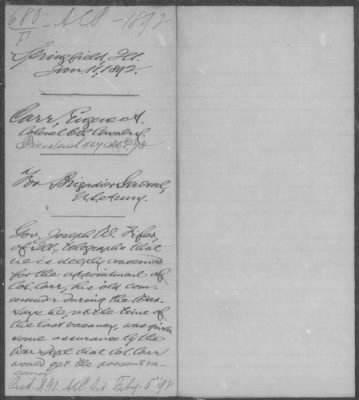 680 - ACP - 1892
Springfield, Ill.
Jan. 11, 1892.
Carr, Eugene A.
Colonel 6th Cavalry.
For Brigadier General,
U.S. Army.
Gov. Joseph W. Fifer,
of Ill., telegraphs that
he is deeply concerned
for the appointment of
Col. Carr, his old com-
mander during the War.
Says he, at the time of
the last vacancy, was given
some assurance by the
War Dept that Col. Carr
would get the
Rec'd A.G.O. ACP. Div. Feby. 5" 92